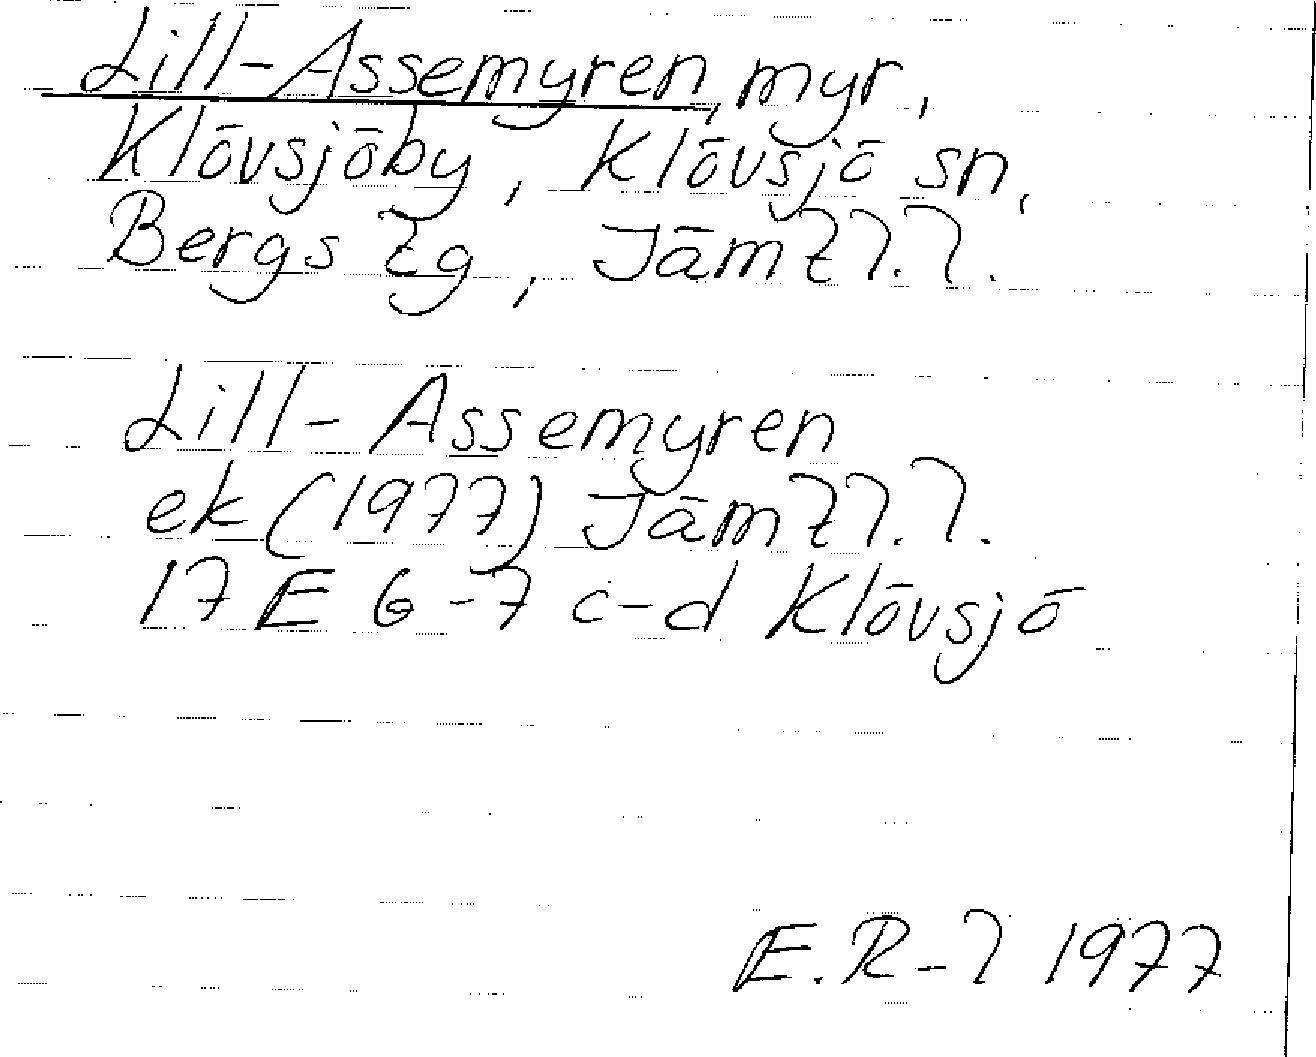 Lill-Assemyren, myr,
Klövsjöby, Klövsjö sn,
Bergs tg, Jämtl. l.
Lill-Assemyren
ek (1977) Jämtl. l.
17 E 6-7 c-d Klövsjö
1977